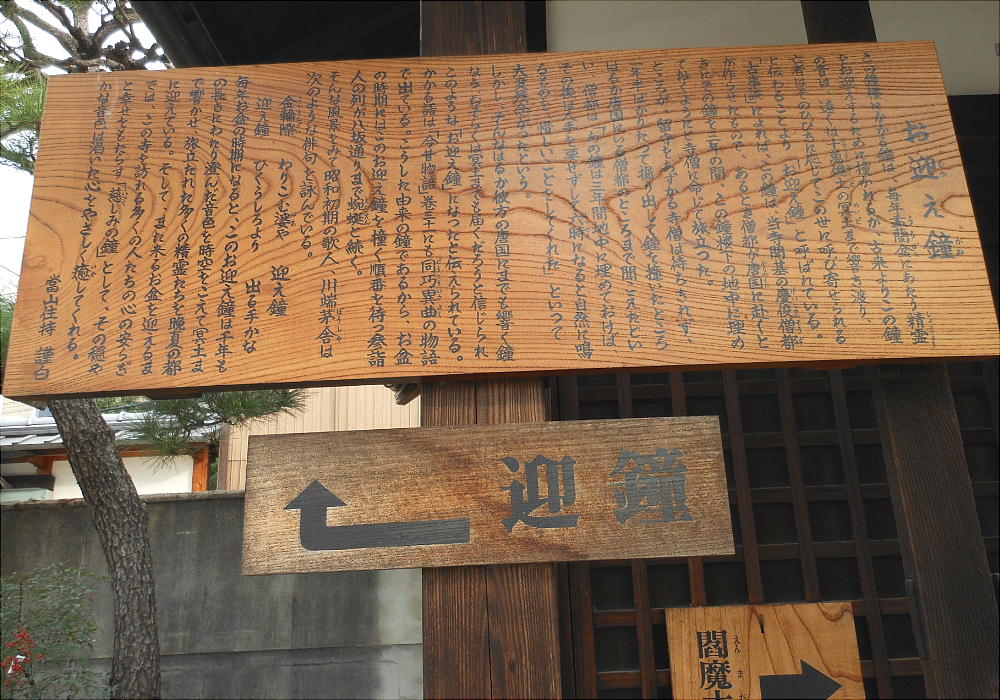 お迎え鐘
この鐘楼にかかる鐘は、毎年盂蘭盆にあたり精霊
をお迎えするために撞かれるが、古来よりこの鐘
の音は、遠く十万億土の冥土にまで響き渡り、
亡者はそのひびきに応じてこの世に呼び寄せられる
と伝わることより「お迎え鐘」と呼ばれている。
によれば、この鐘は、当寺開基の慶俊僧都
が作らせたもので、あるとき僧都が唐国に赴くと
きにこの鐘を三年の間、この鐘楼下の地中に埋め
ておくように寺僧に命じて旅立った。
ところが、留守をあずかる寺僧は待ちきれず、
一年半ばかりたって掘り出して鐘を撞いたところ、
はるか唐国にいる僧都のところまで聞こえたとい
い、僧都は「あの鐘は三年間地中に埋めておけば、
その後は人手を要せずして六時になると自然に鳴
るものを、惜しいことをしてくれた」といって
大変残念がったという。
しかし、そんなはるか彼方の唐国にまでも響く鐘
なら、おそらくは冥土までも届くだろうと信じられ
このような「お迎え鐘」になったと伝えられている。
かかる話は「今昔物語」巻三十一にも同巧異曲の物語
で出ている。こうした由来の鐘であるから、お盆
の時期にはこのお迎え鐘を撞く順番を待つ参詣
人の列が大坂通りまで蜿蜒と続く。
そんな風景をみて昭和初期の歌人、川端茅舎は
次のような俳句を詠んでいる。
金輪際 わりこむ婆や 迎え鐘
迎え鐘 ひくうしろより 出る手かな
毎年お盆の時期になると、このお迎え鐘は千年も
の長きにわたり澄んだ音色を時空をこえて冥土ま
で響かせ、旅立たれた多くの精霊たちを晩夏の都
に迎えている。そして、また来るお盆を迎えるま
では、この寺を訪れる多くの人たちの心の安らぎ
と幸せをもたらす「慈しみの鐘」として、その穏や
かな音色は渇いた心をやさしく癒してくれる。
當山住持 謹白
迎鐘
閻魔
えんま